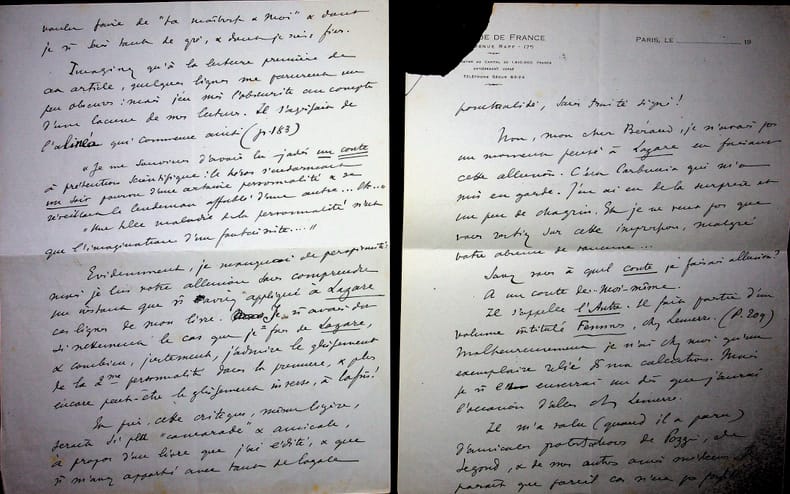 vouloir faire de "ta maîtort & Moi" & dont
je vous sais tant de gré, & dont je suis fier.
Imaginez qu'à la lecture première de
un article, quelques lignes me parurent un
peu obscures : mais j'en mis l'obscurité au compte
d'une lacune de mes lecteurs. Il s'agissait de
l'alinéa qui commence ainsi (p. 183)
"Je me souviens d'avoir lu jadis un conte
à prétention scientifique : le héros s'endormait
un soir pourvu d'une certaine personnalité & se
réveillait le lendemain affublé d'une autre... Etc..."
"Une telle maladie de la personnalité n'est
que l'imagination d'un fantaisiste...."
Evidemment, je manquai de perspicacité
mais je lus votre allusion sans comprendre
un instant que vous aviez appliqué à Lagare
ces lignes de mon livre. Je vous avais dit
si nettement le cas que je fais de Lagare,
& combien, justement, j'admire le glissement
de la 2me personnalité dans la première, & plus
encore peut-être le glissement inverse, à la fin!
Et puis, cette critique, même légère,
serait si peu "camarade" & amicale,
à propos d'un livre que j'ai édité, & que
vous m'avez apporté avec tant de loyale
DE DE FRANCE
VENUE RAPP - 17
PARIS, LE 19
ponctualité, sans traité signé!
Non, mon cher Béraud, je n'avais pas
un moment pensé à Lagare en faisant
cette allusion. C'est Carbuccia qui m'a
mis en garde. J'en ai eu de la surprise et
un peu de chagrin. Et je ne veux pas que
vous restiez sur cette impression, malgré
votre absence de rancune...
Savez vous à quel conte je faisais allusion?
A un conte de Moi-même.
Il s'appelle l'Autre. Il fait partie d'un
volume intitulé Femmes, chez Lemerre. (P. 209)
Malheureusement je n'ai chez moi qu'un
exemplaire relié de ma collection. Mais
je vous enverrai un dès que j'aurai
l'occasion d'aller chez Lemerre.
Il m'a valu (quand il a paru)
d'amicales protestations de Pozzi, de
Segond, & de mes autres amis médecins.
paraît que pareil cas n'est pas